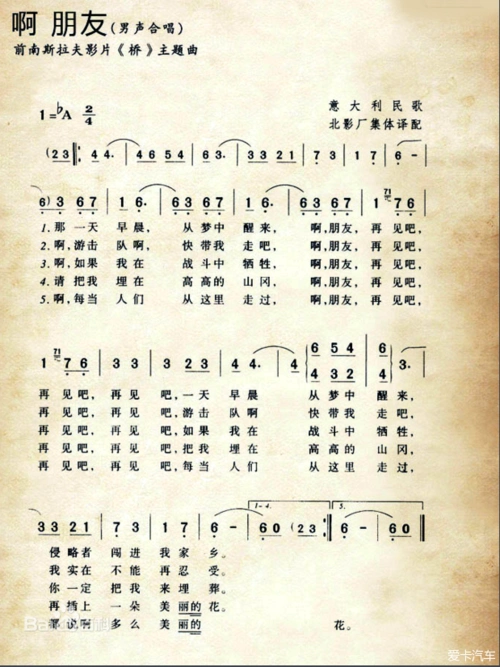 啊 朋友(男声合唱)
前南斯拉夫影片《桥》主题曲
1=♭A 2/4
意大利民歌
北影厂集体译配
(23 | 44. | 4654 | 63. | 3321 | 73 | 17 | 6 -
6)3 67 | 1. | 63 67 | 1. | 63 67 | 1. 71 | 1 76
1.那一天 早晨, 从梦中 醒来, 啊,朋友, 再见吧,
2.啊,游击 队啊, 快带我 走吧, 啊,朋友, 再见吧,
3.啊,如果 我在 战斗中 牺牲, 啊,朋友, 再见吧,
4.请把我 埋在 高高的 山冈, 啊,朋友, 再见吧,
5.啊,每当 人们 从这里 走过, 啊,朋友, 再见吧,
1 71 76 | 33 | 3 23 | 44. | 44. | 6 54 6 | 3.
4 32 4
再见吧, 再见 吧,一天 早晨 从梦中 醒来,
再见吧, 再见 吧,游击 队啊 快带我 走吧,
再见吧, 再见 吧,如果 我在 战斗中 牺牲,
再见吧, 再见 吧,把我 埋在 高高的 山冈,
再见吧, 再见 吧,每当 人们 从这里 走过,
1-4. 5.
33 21 | 73 | 17 | 6 - | 60 (23 | 6 - | 60
侵略者 闯进 我家 乡。
我实在 不能 再忍 受。
你一定 把我 来埋 葬。
再插上 一朵 美丽的 花。
都说啊 多么 美丽的 花。
爱卡汽车